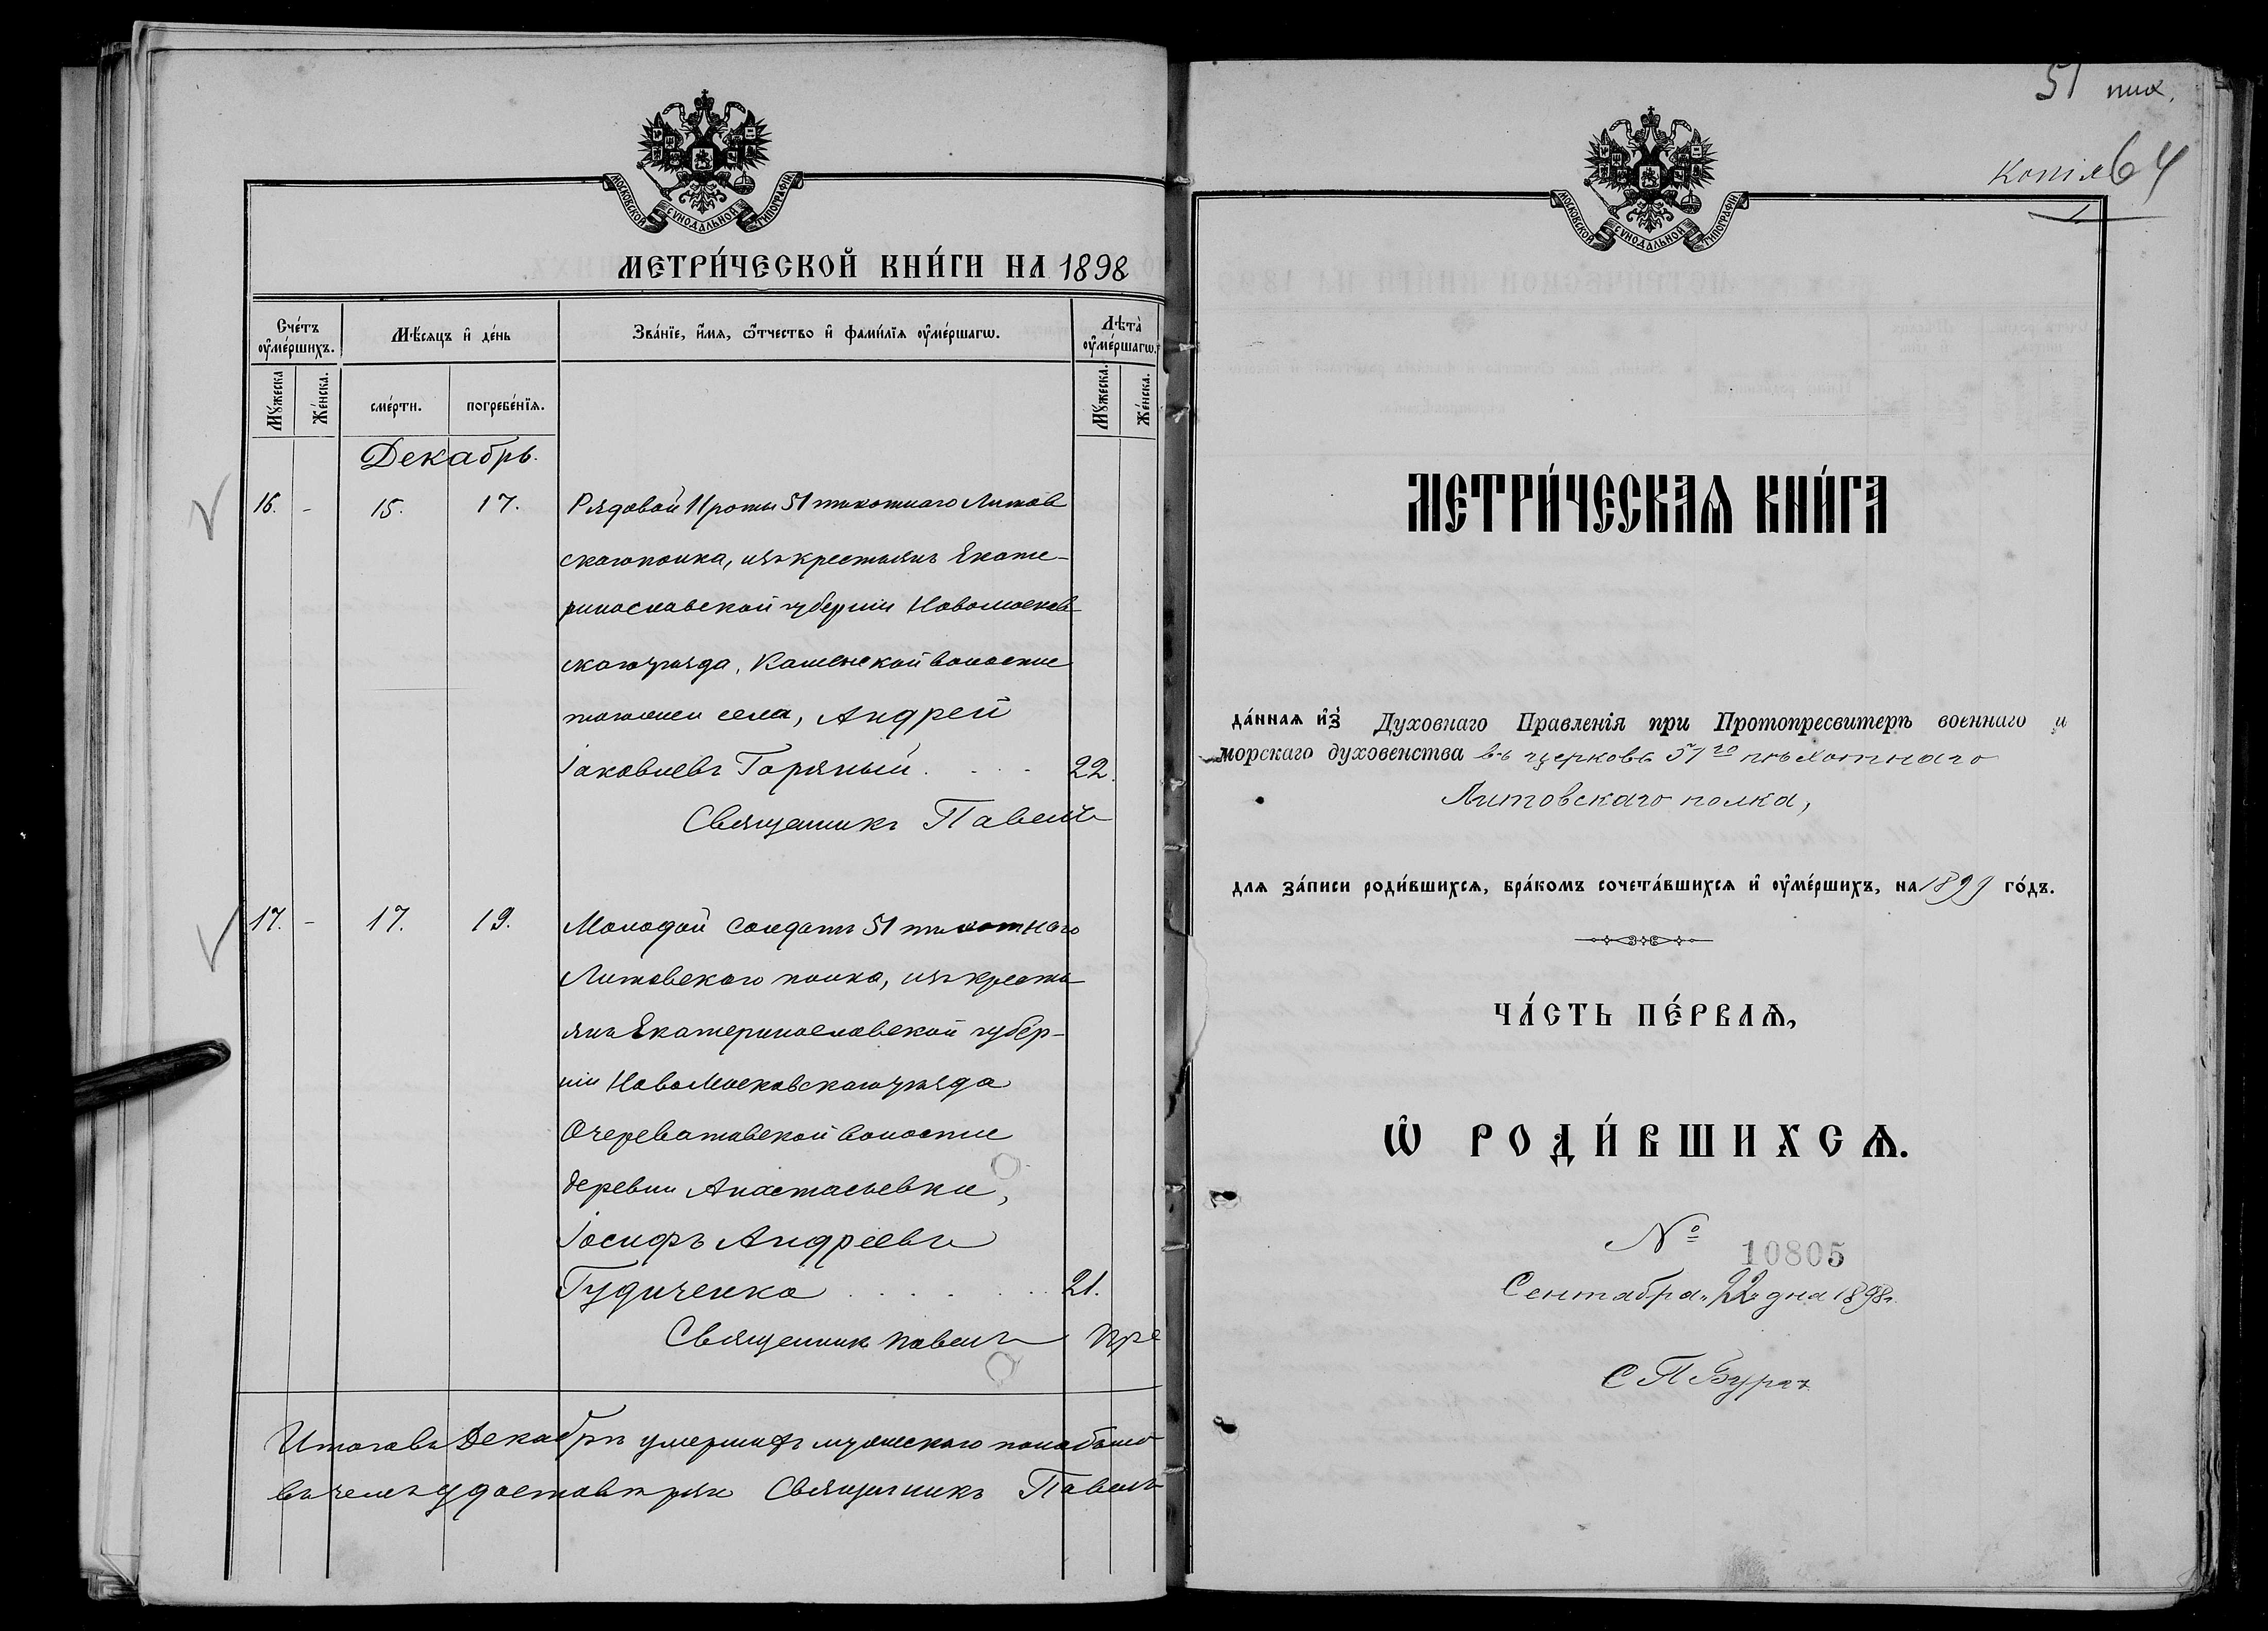 МОСКОВСКОЙ СѴНОДАЛЬНОЙ ТИПОГРАФІИ
МЕТРИ́ЧЕСКОЙ КНИ́ГИ НА 1898
Сче́тъ оу҆ме́ршихъ.
Мѣ́сяцъ и҆ де́нь
Зва́нїе, и҆́мя, ѻ҆́тчество и҆ фами́лїя оу҆ме́ршагѡ.
Лѣта̀ оу҆ме́ршагѡ.
Мꙋ́жеска
Же́нска.
сме́рти.
погребе́нїя.
Мꙋ́жеска.
Же́нска.
Декабрь.
16. - 15. 17. Рядовой 11 роты 51 пѣхотнаго Литов
скаго полка, изъ крестьянъ Екате-
ринославской губерніи Новомосков
скаго уѣзда, Каменской волости
тогоже села, Андрей
Іаковлевъ Горяный . . . 22.
Священникъ Павелъ
17. - 17. 19. Молодой солдатъ 51 пѣхотнаго
Литовскаго полка, изъ кресть
янъ Екатеринославской губер-
ніи Новомосковскаго уѣзда
Очереватовской волости
деревни Анастасьевки,
Іосифъ Андреевъ
Гудиченко . . . . . 21.
Священникъ Павелъ Пре
Итого въ Декабрѣ умершихъ мужескаго пола было
въ чемъ удостовѣряю Священникъ Павелъ
51 пѣх.
Копія 64
МОСКОВСКОЙ СѴНОДАЛЬНОЙ ТИПОГРАФІИ
МЕТРИ́ЧЕСКАѦ КНИ́ГА
да́нная и҆з̾ Духовнаго Правленія при Протопресвитерѣ военнаго и
морскаго духовенства въ церковь 51го пѣхотнаго
Литовскаго полка,
для за́писи роди́вшихся, бра́комъ сочета́вшихся и҆ оу҆ме́ршихъ, на 1899 го́дъ.
ЧА́СТЬ ПЕ́РВАѦ,
Ѽ РОДИ́ВШИХСѦ.
№ 10805
Сентября „22„ дня 1898 г.
С П Бургъ